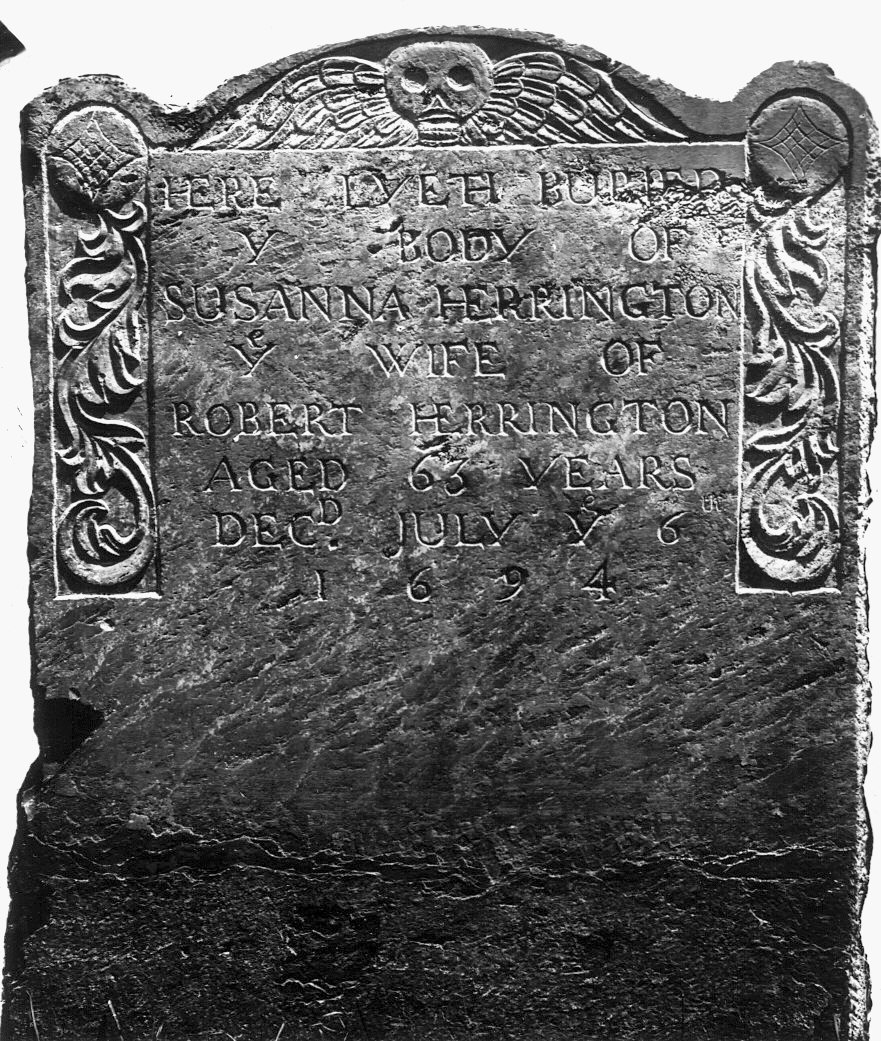 HERE LYETH BURIED
Y BODY OF
SUSANNA HERRINGTON
Yᵉ WIFE OF
ROBERT HERRINGTON
AGED 63 YEARS
DECᴰ. JULY Yᵉ 6ᵗʰ
1694